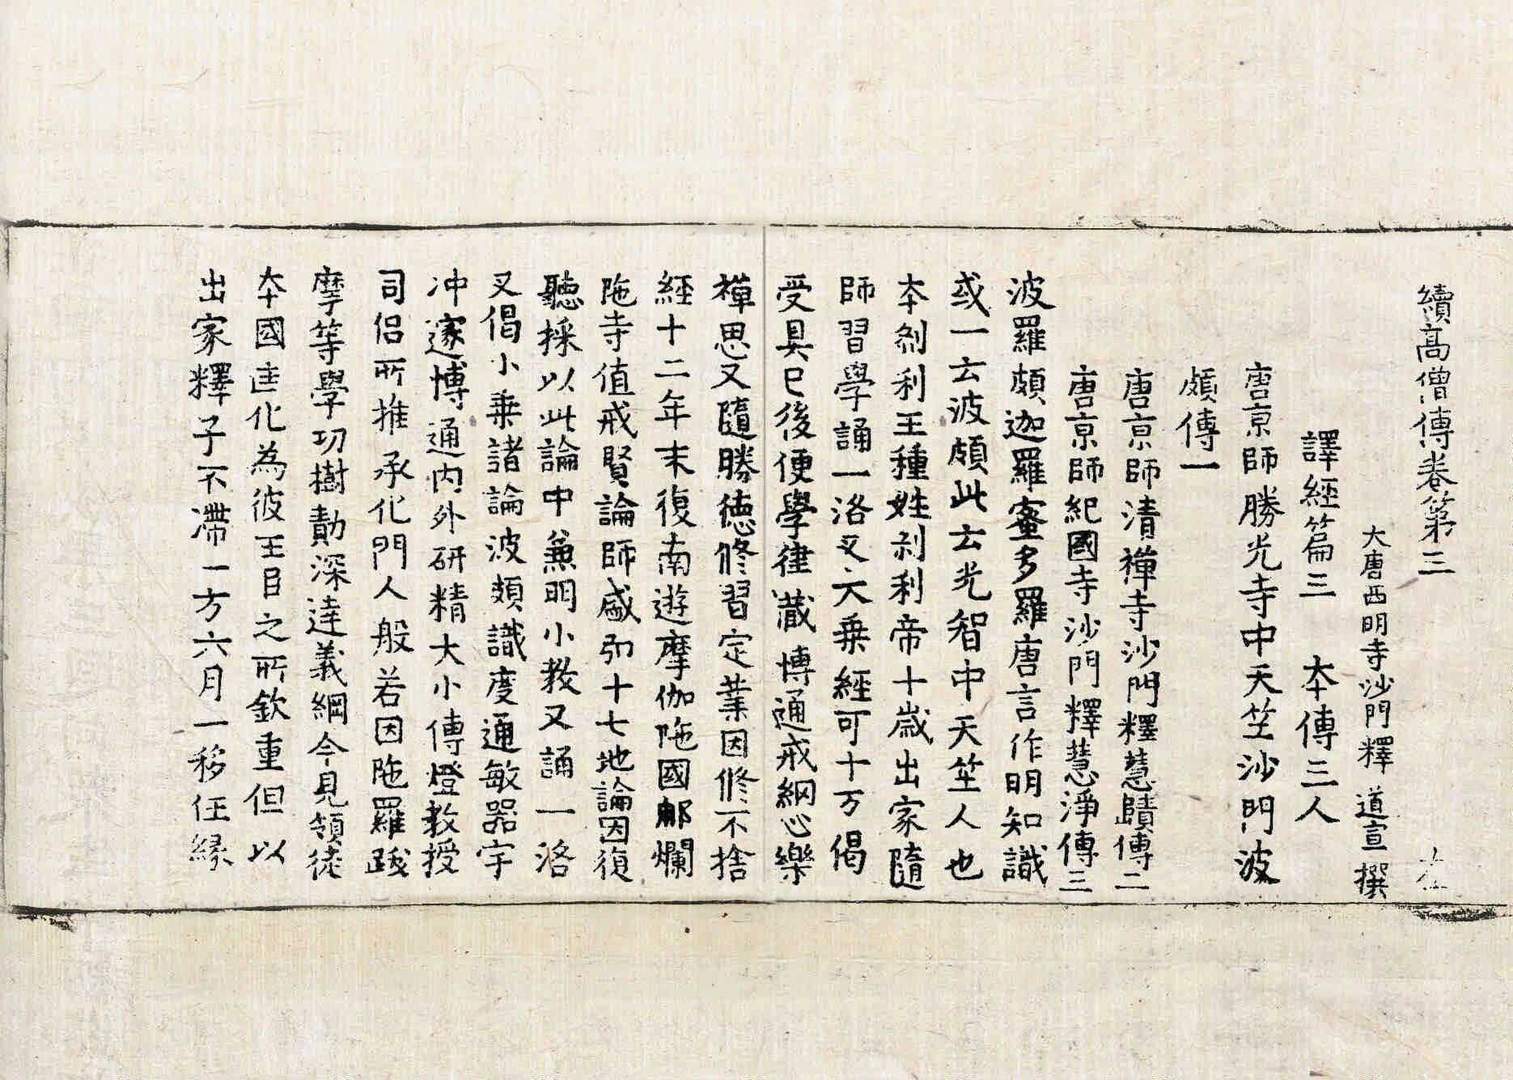 續髙僧傳卷第三　左
大唐西明寺沙門釋　道宣　撰
譯經篇三　本傳三人
唐京師勝光寺中天竺沙門波
頗傳一
唐京師清禪寺沙門釋慧賾傳二
唐京師紀國寺沙門釋慧淨傳三
波羅頗迦羅蜜多羅唐言作明知識
或一云波頗此云光智中天竺人也
本剎利王種姓剎利帝十歲出家隨
師習學誦一洛叉大乘經可十万偈
受具已後便學律藏博通戒綱心樂
禪思又隨勝德修習定業因修不捨
經十二年末復南遊摩伽陁國郍爛
陁寺值戒賢論師盛弘十七地論因復
聽採以此論中兼明小教又誦一洛
叉偈小乘諸論波頗識度通敏器宇
冲邃博通內外研精大小傳燈教授
司侶所推承化門人般若因陁羅跋
摩等學功樹勣深達義綱今見領徒
本國匡化為彼王臣之所欽重但以
出家釋子不滯一方六月一移任緣